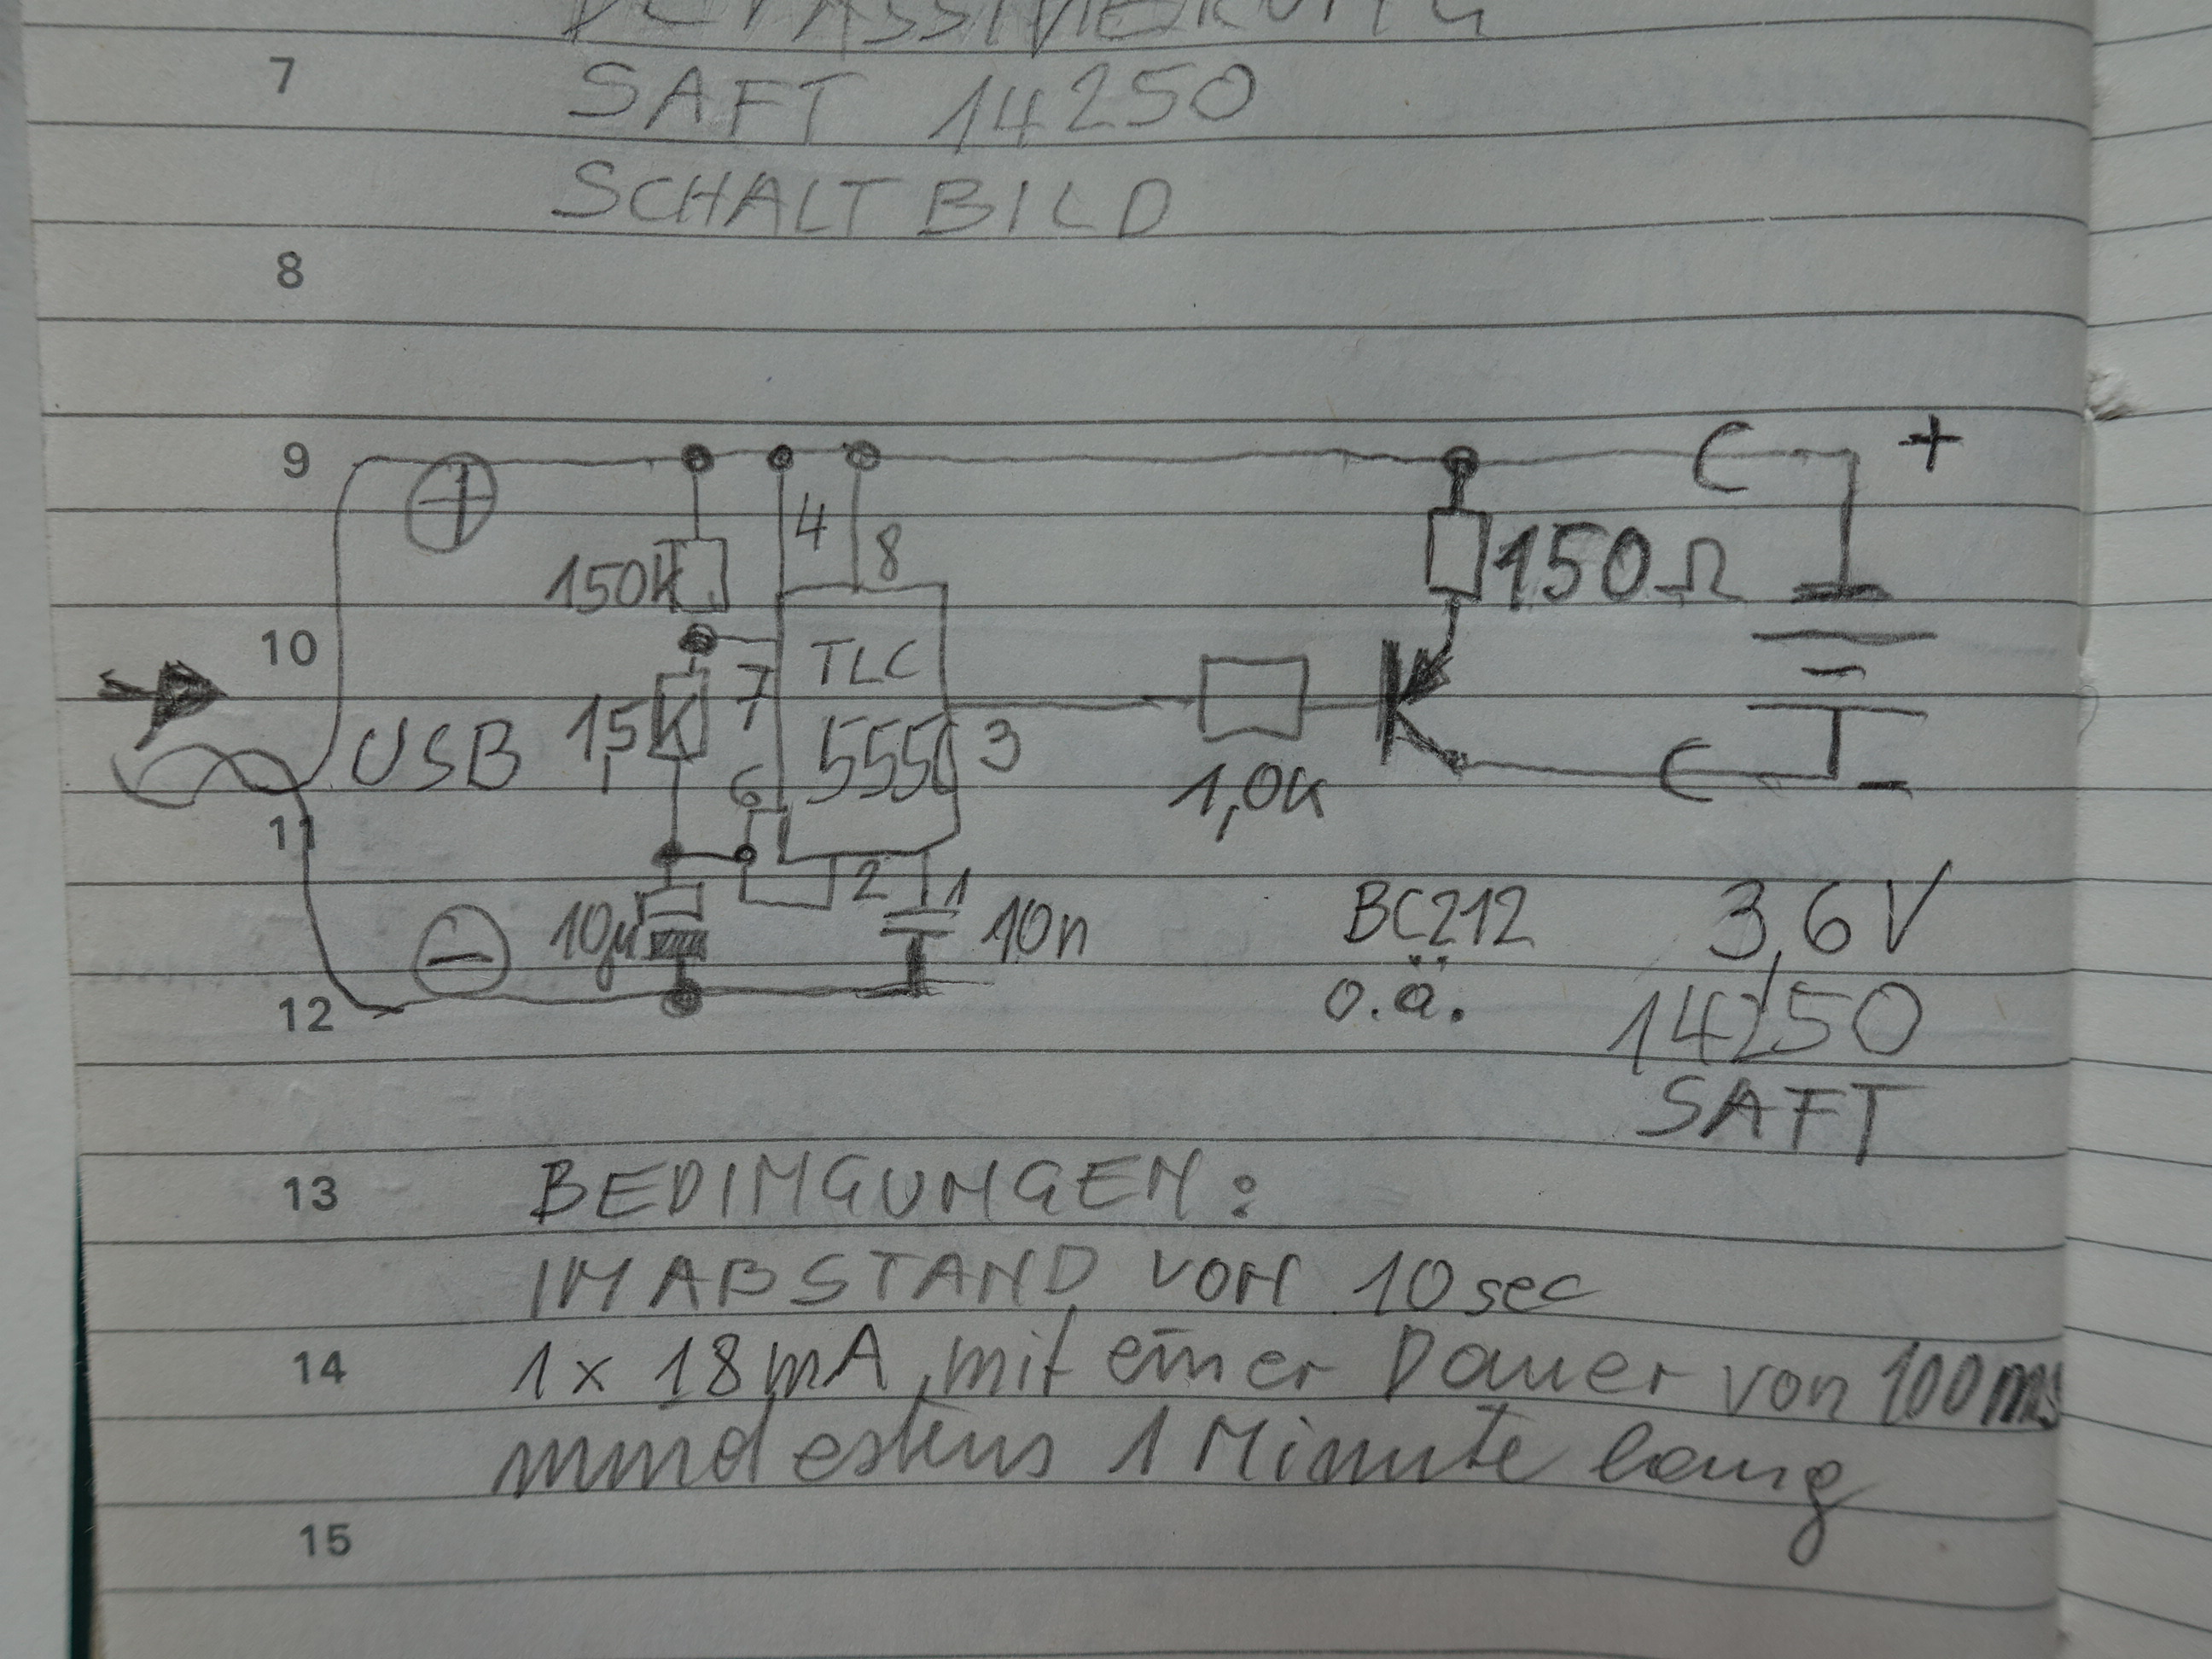 DEPASSIVIERUNG
7
SAFT 14250
SCHALTBILD
8
9
+
4
8
150k
150Ω
10
TLC
7
1,5K
555C
3
USB
6
1,0K
11
2
1
10µ
10n
BC212
o.ä.
3,6V
12
14250
SAFT
13
BEDINGUNGEN:
IM ABSTAND VON 10 sec
14
1 x 18 mA, mit einer Dauer von 100ms
mindestens 1 Minute lang
15